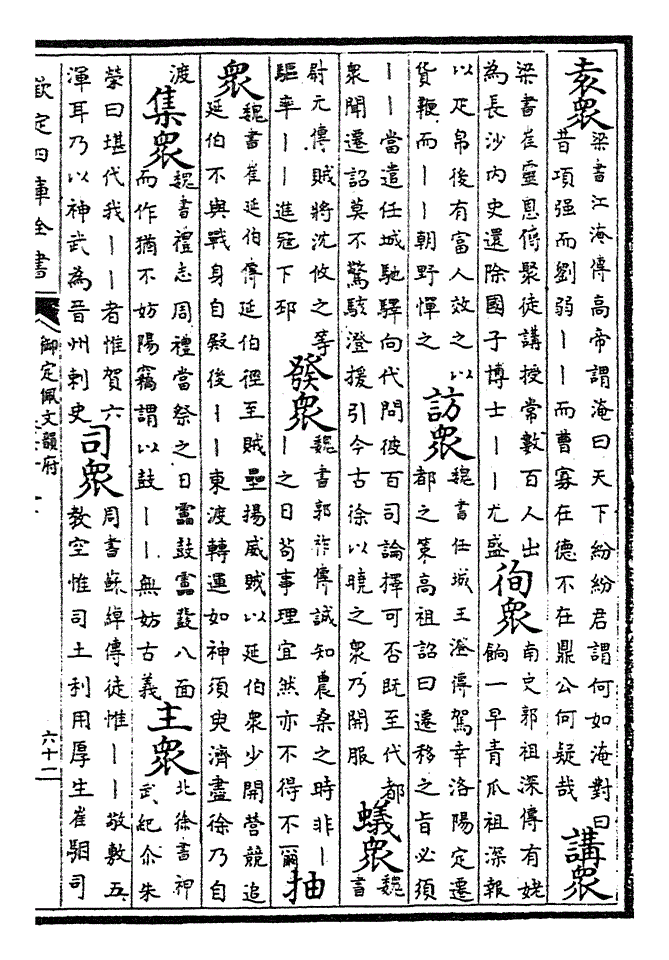 袁眾
梁書江淹傳高帝謂淹曰天下紛紛君謂何如淹對曰
昔項强而劉弱丨丨而曹寡在德不在鼎公何疑哉
講眾
梁書崔靈恩傳聚徒講授常數百人出
為長沙內史還除國子博士丨丨尤盛
徇眾
南史郭祖深傳有姥
餉一早青瓜祖深報
以疋帛後有富人效之以
貨鞭而丨丨朝野憚之
訪眾
魏書任城王澄傳駕幸洛陽定遷
都之策高祖詔曰遷移之旨必須
丨丨當遣任城馳驛向代問彼百司論擇可否既至代都
眾聞遷詔莫不驚駭澄援引今古徐以曉之眾乃開服
蟻眾
魏
書
尉元傳賊將沈攸之等
驅率丨丨進冦下邳
發眾
魏書郭祚傳誠知農桑之時非丨
丨之日苟事理宜然亦不得不爾
抽
眾
魏書崔延伯傳延伯徑至賊壘揚威賊以延伯眾少開營競追
延伯不與戰身自殿後丨丨東渡轉運如神須臾濟盡徐乃自
渡
集眾
魏書禮志周禮當祭之日靁鼓靁鼗八面
而作猶不妨陽竊謂以鼓丨丨無妨古義
主眾
北徐書神
武紀尒朱
榮曰堪代我丨丨者惟賀六
渾耳乃以神武為晉州刺史
司眾
周書蘇綽傳徒惟丨丨敬敷五
教空惟司土利用厚生崔駰司
欽定四庫全書
御定佩文韻府
六十二